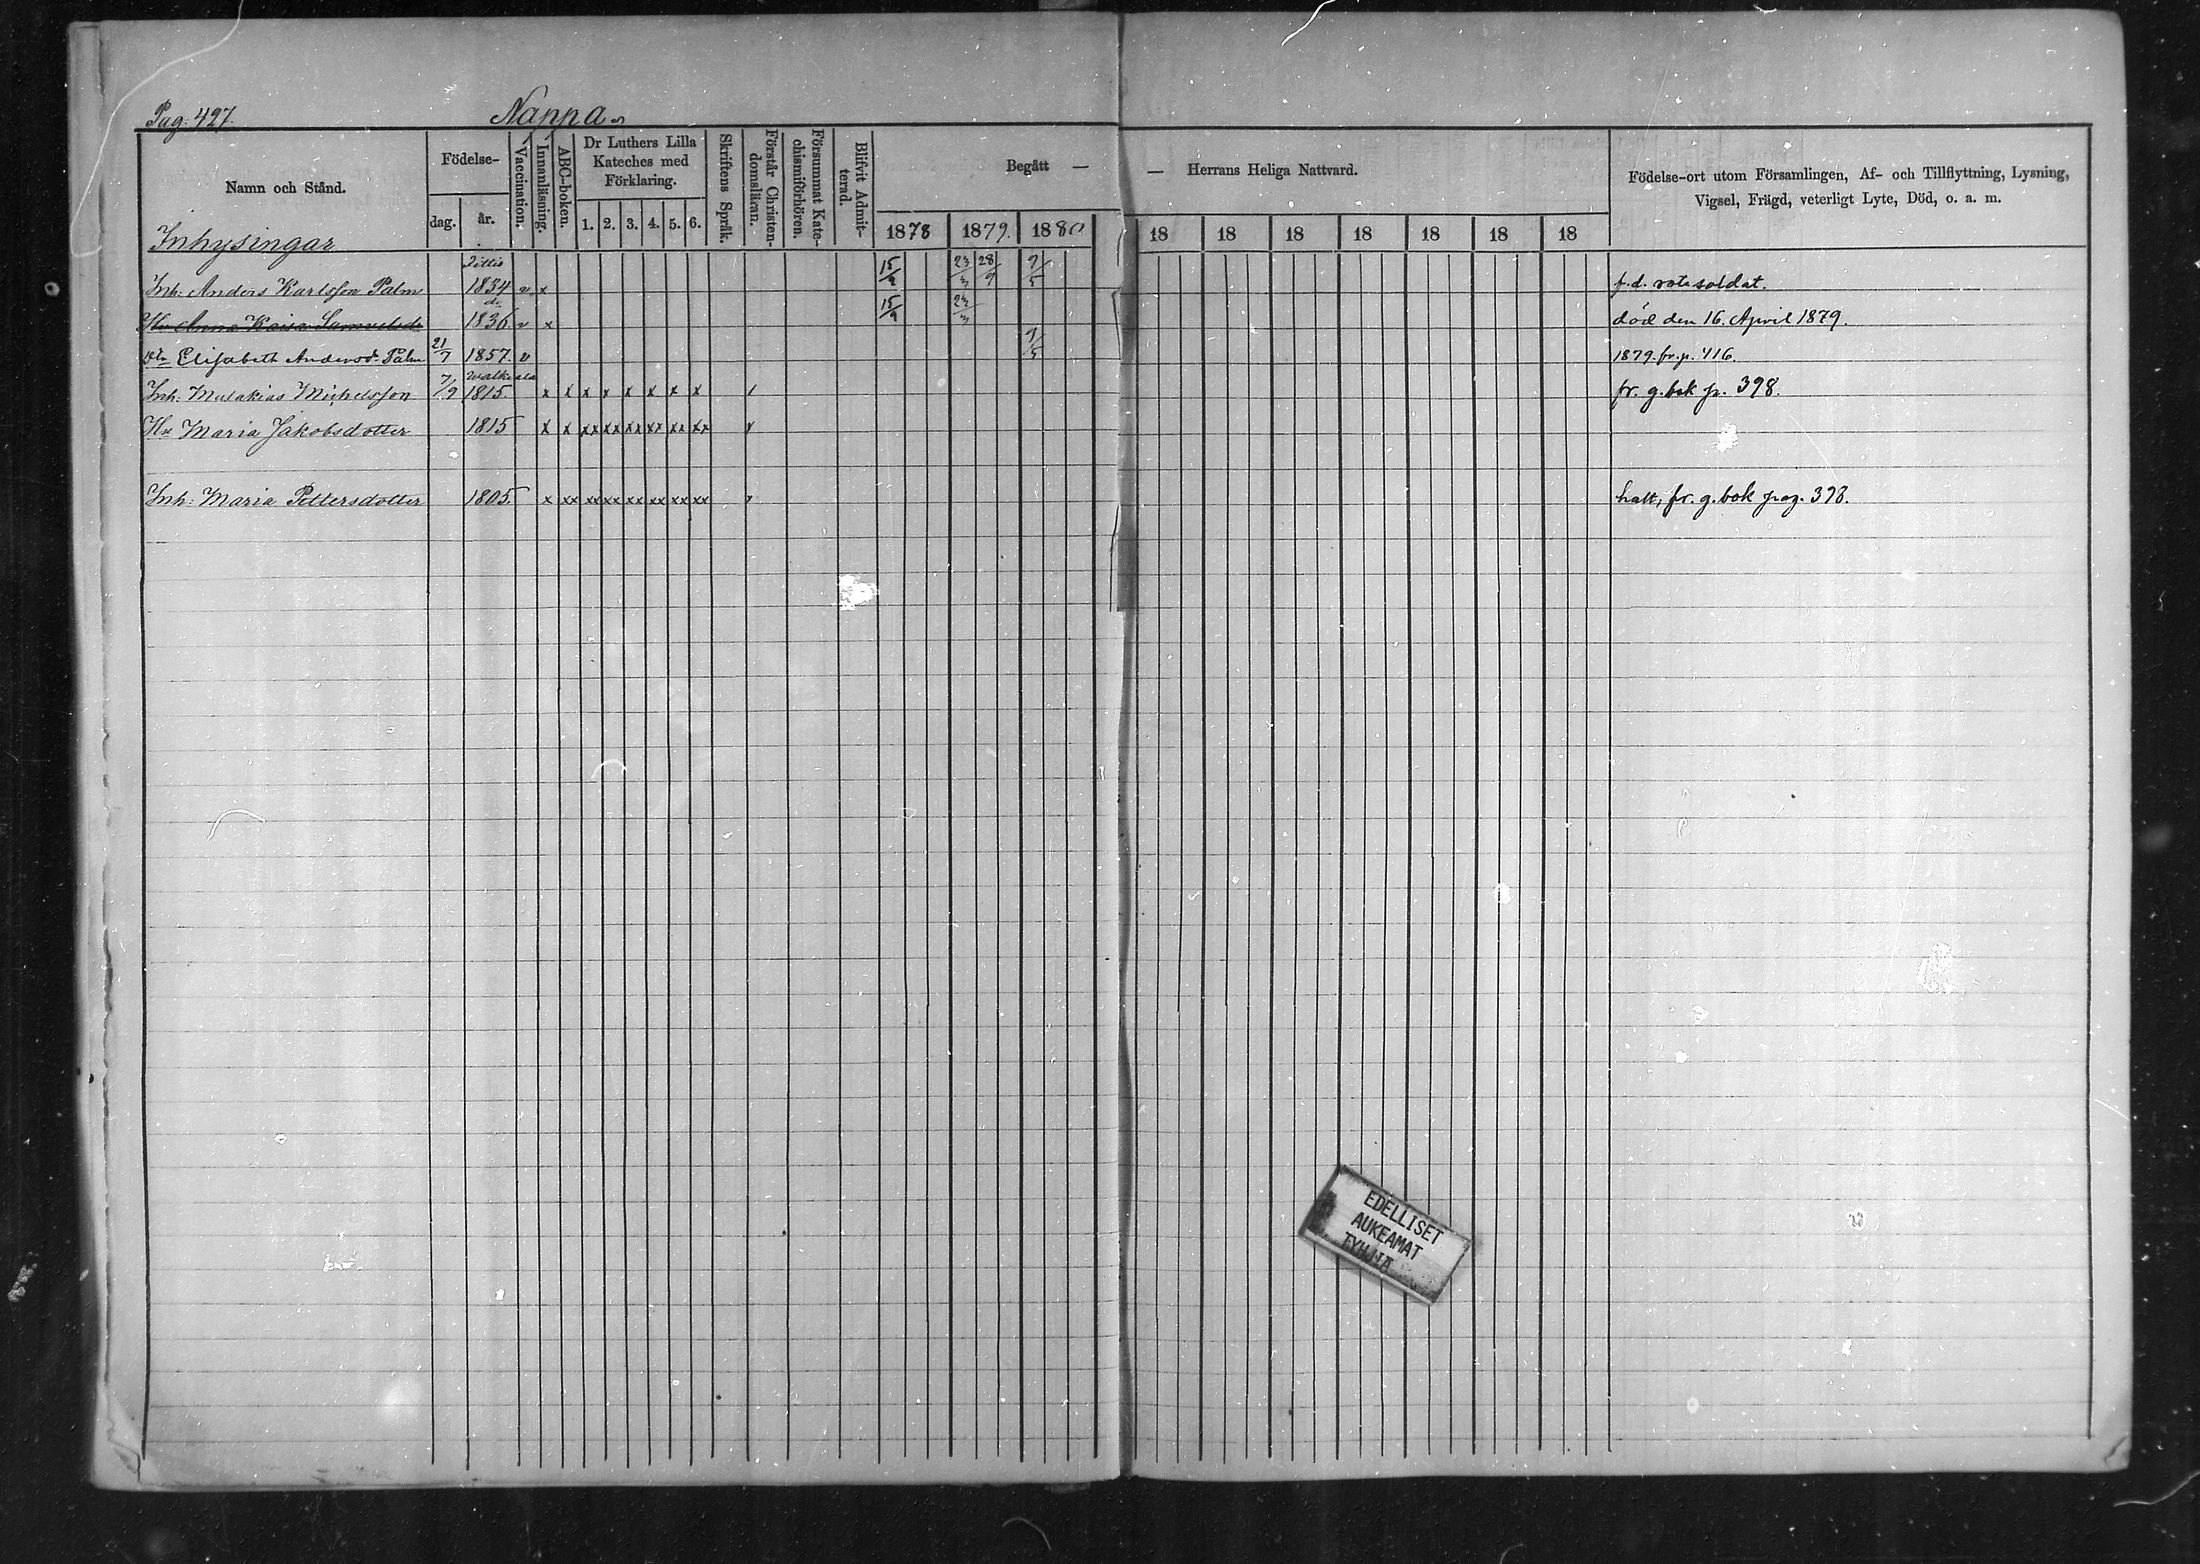 Pag: 427. Nappa
Namn och Stånd. Födelse- dag. år. Vaccination. Innanläsning. ABC-boken. Dr Luthers Lilla Kateches med Förklaring. 1. 2. 3. 4. 5. 6. Skriftens Språk. Förstår Christendomsläran. Försummat Katechismiförhören. Blifvit Admitterad. Begått — — Herrans Heliga Nattvard. Födelse-ort utom Församlingen, Af- och Tillflyttning, Lysning, Vigsel, Frägd, veterligt Lyte, Död, o. a. m.
1878 1879. 1880 18 18 18 18 18 18 18
Inhysingar
Pittis
Inh: Anders Karlsson Palm 1834 v x 15/9 23/3 28/9 9/5 f.d. rotesoldat.
do
Hu Anna Kaisa Samuelsdr 1836 v x 15/9 23/3 död den 16. April 1879.
dtr Elisabeth Andersdr Palm 21/7 1857. v 9/5 1879. fr. p. 416.
Walkeala
Inh: Malakias Michelsson 7/9 1815. x x x x x x x x / fr. g. bok p. 398.
Hu Maria Jakobsdotter 1815 x x xx xx xx xx xx xx x
Inh: Maria Pettersdotter 1805. x xx xx xx xx xx xx xx halt, fr. g. bok pag. 398.
EDELLISET
AUKEAMAT
TYHJIÄ